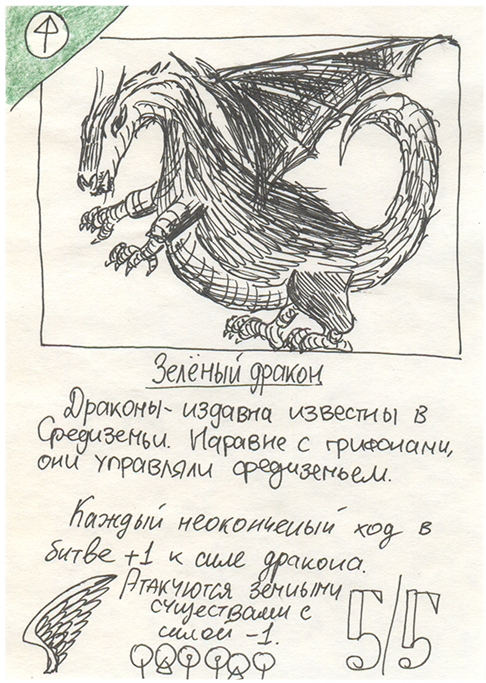 Зелёный дракон
Драконы - издавна известны в
Средиземьи. Наравне с грифонами,
они управляли средиземьем.
Каждый неоконченый ход в
битве +1 к силе дракона.
Атакуются земными
существами с
силой -1.
5/5